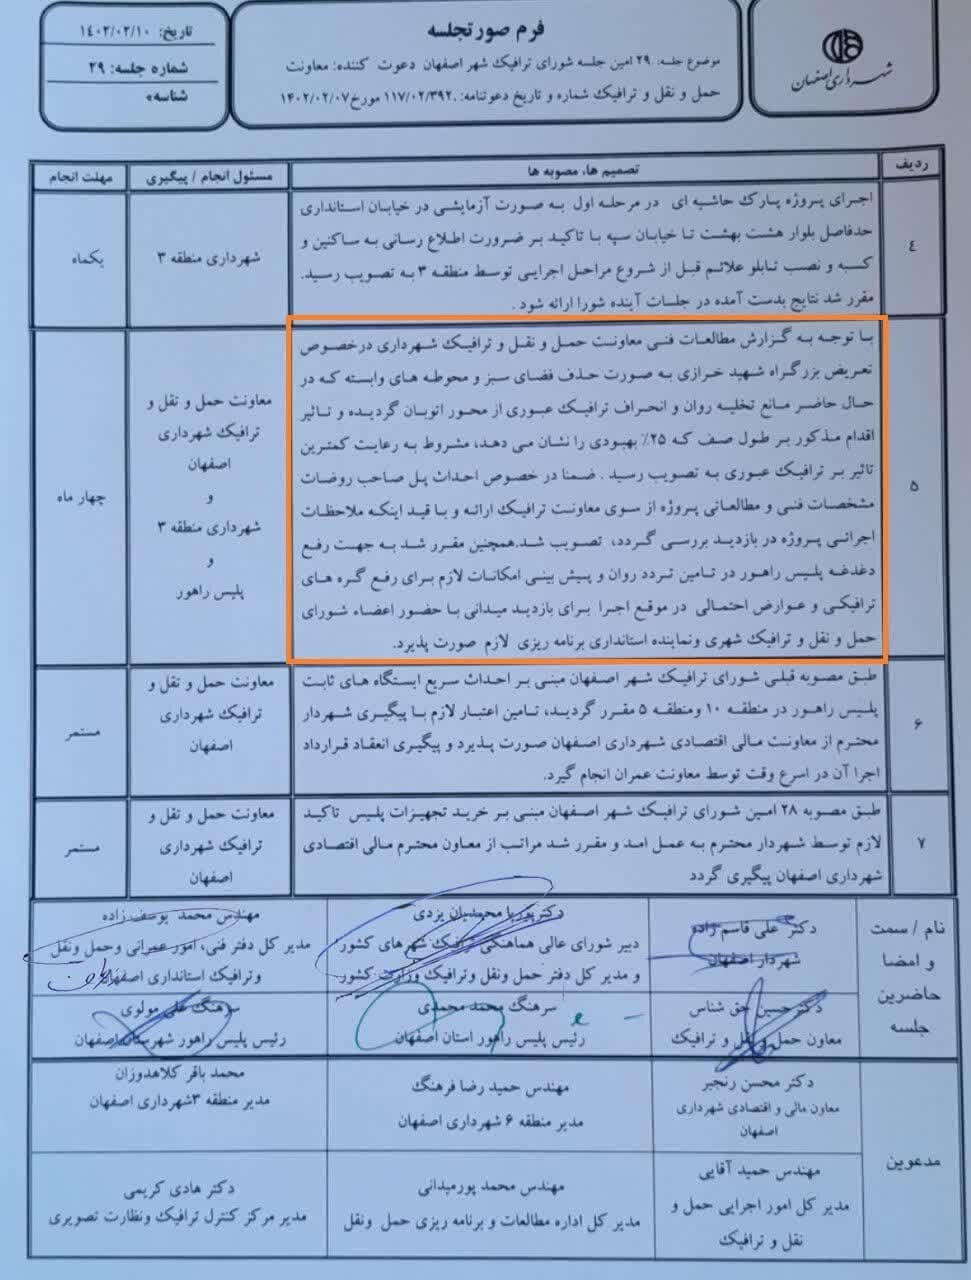 شهرداری اصفهان
فرم صورتجلسه
موضوع جلسه: ۲۹ امین جلسه شورای ترافیک شهر اصفهان دعوت کننده: معاونت
حمل و نقل و ترافیک شماره و تاریخ دعوتنامه: ۱۱۷/۰۲/۳۹۲۰ مورخ۱۴۰۲/۰۲/۰۷
تاریخ: ۱۴۰۲/۰۲/۱۰
شماره جلسه: ۲۹
شناسه۰
ردیف
تصمیم ها، مصوبه ها
مسئول انجام / پیگیری
مهلت انجام
۴
اجرای پروژه پارک حاشیه ای در مرحله اول به صورت آزمایشی در خیابان استانداری
حدفاصل بلوار هشت بهشت تا خیابان سپه با تاکید بر ضرورت اطلاع رسانی به ساکنین و
کسبه و نصب تابلو علائم قبل از شروع مراحل اجرایی توسط منطقه ۳ به تصویب رسید.
مقرر شد نتایج بدست آمده در جلسات آینده شورا ارائه شود .
شهرداری منطقه ۳
یکماه
۵
با توجه به گزارش مطالعات فنی معاونت حمل و نقل و ترافیک شهرداری درخصوص
تعریض بزرگراه شهید خرازی به صورت حذف فضای سبز و محوطه های وابسته که در
حال حاضر مانع تخلیه روان و انحراف ترافیک عبوری از محور اتوبان گردیده و تاثیر
اقدام مذکور بر طول صف که ۲۵٪ بهبودی را نشان می دهد، مشروط به رعایت کمترین
تاثیر بر ترافیک عبوری به تصویب رسید . ضمنا در خصوص احداث پل صاحب روضات
مشخصات فنی و مطالعاتی پروژه از سوی معاونت ترافیک ارائه و با قید اینکه ملاحظات
اجرائی پروژه در بازدید بررسی گردد، تصویب شد.همچنین مقرر شد به جهت رفع
دغدغه پلیس راهور در تامین تردد روان و پیش بینی امکانات لازم برای رفع گره های
ترافیکی و عوارض احتمالی در موقع اجرا برای بازدید میدانی با حضور اعضاء شورای
حمل و نقل و ترافیک شهری ونماینده استانداری برنامه ریزی لازم صورت پذیرد.
معاونت حمل و نقل و
ترافیک شهرداری
اصفهان
و
شهرداری منطقه ۳
و
پلیس راهور
چهار ماه
۶
طبق مصوبه قبلی شورای ترافیک شهر اصفهان مبنی بر احداث سریع ایستگاه های ثابت
پلیس راهور در منطقه ۱۰ ومنطقه ۵ مقرر گردید، تامین اعتبار لازم با پیگیری شهردار
محترم از معاونت مالی اقتصادی شهرداری اصفهان صورت پذیرد و پیگیری انعقاد قرارداد
اجرا آن در اسرع وقت توسط معاونت عمران انجام گیرد.
معاونت حمل و نقل و
ترافیک شهرداری
اصفهان
مستمر
۷
طبق مصوبه ۲۸ امین شورای ترافیک شهر اصفهان مبنی بر خرید تجهیزات پلیس تاکید
لازم توسط شهردار محترم به عمل امد و مقرر شد مراتب از معاون محترم مالی اقتصادی
شهرداری اصفهان پیگیری گردد
معاونت حمل و نقل و
ترافیک شهرداری
اصفهان
مستمر
نام / سمت
و امضا
حاضرین
جلسه
دکتر علی قاسم زاده
شهردار اصفهان
دکترپوریا محمدیان یزدی
دبیر شورای عالی هماهنگی ترافیک شهرهای کشور
و مدیر کل دفتر حمل ونقل وترافیک وزارت کشور
مهندس محمد یوسف زاده
مدیر کل دفتر فنی، امور عمرانی وحمل ونقل
وترافیک استانداری اصفهان
دکتر حسین حق شناس
معاون حمل و نقل و ترافیک
سرهنگ محمد محمدی
رئیس پلیس راهور استان اصفهان
سرهنگ علی مولوی
رئیس پلیس راهور شهرستان اصفهان
مدعوین
دکتر محسن رنجبر
معاون مالی و اقتصادی شهرداری
اصفهان
مهندس حمید رضا فرهنگ
مدیر منطقه ۶ شهرداری اصفهان
محمد باقر کلاهدوزان
مدیر منطقه ۳شهرداری اصفهان
مهندس حمید آقایی
مدیر کل امور اجرایی حمل و
نقل و ترافیک
مهندس محمد پورمیدانی
مدیر کل اداره مطالعات و برنامه ریزی حمل ونقل
دکتر هادی کریمی
مدیر مرکز کنترل ترافیک ونظارت تصویری